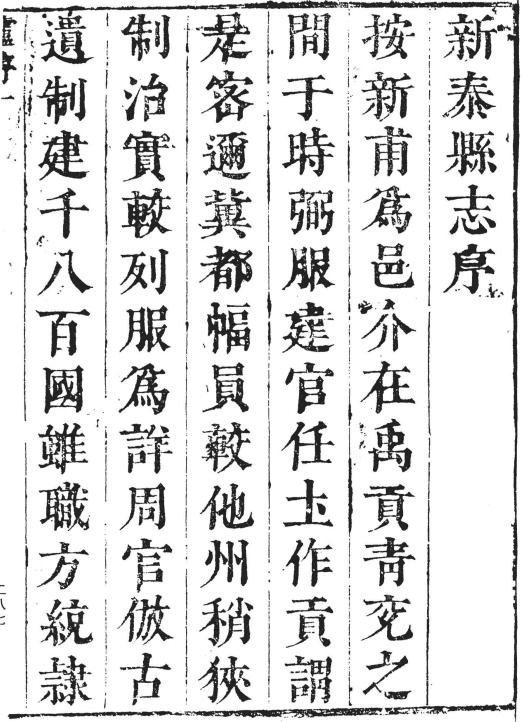 新泰縣志序
按新甫爲邑介在禹貢青兗之
間于時弼服建官任土作貢謂
是密邇冀都幅員較他州稍狹
制治實較列服爲詳周官倣古
遺制建千八百國雖職方統隷
序一
二八七